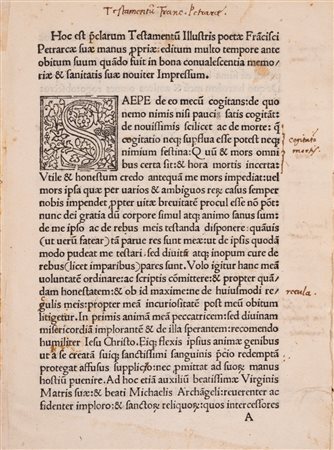 Testamentū Franc. Petrarcæ.
Hoc est p̄clarum Testamentũ Illustris poetæ Frãcisci
Petrarcæ suæ manus ꝓpriæ: editum multo tempore ante
obitum suum quãdo fuit in bona conualescentia memo/
riæ & sanitatis suæ nouiter Impressum.
SAEPE de eo mecũ cogitans: de quo
nemo nimis nisi pauci satis cogitãt:
de nouissimis scilicet ac de morte: q̃
cogitatio neq; supflua esse potest neq;
nimium festina: Quũ & mors omni
bus certa sit: & hora mortis incerta:
cogitatio
mortis
Vtile & honestum credo antequã me mors impediat: uel
mors ipsa quæ per uarios & ambiguos reɽ casus semper
nobis impendet, ꝓpter uitæ breuitatẽ procul esse nõ põt:
nunc dei gratia dũ corpore simul atq; animo sanus sum:
de me ipso ac de rebus meis testanda disponere: quãuis
(ut ueru fatear) tã paruæ res sunt meæ: ut de ipsis quodã
modo pudeat me testari. sed diuitũ atq; inopum curæ de
rebus (licet imparibus) pares sunt. Volo igitur hanc meã
uoluntatẽ ordinare: ac scriptis cõmittere: & propter quã/
dam honestatem: & ob id maxime de huiusmodi re/
gulis meis: propter meã incuriositatẽ post meũ obitum
recula.
litigetur. In primis animã meã peccatricem: sed diuinam
misericordiã implorantẽ & de illa sperantem: recomendo
humiliter Iesu Christo. Eiq; flexis ipsius animæ genibus
ut a se creatã suiq; sanctissimi sanguinis p̄cio redemptã
protegat assusus supplico: nec ꝑmittat ad suoɽ manus
hostiũ puenire. Ad hoc etiã auxiliũ beatissimæ Virginis
Matris suæ: & beati Michaelis Archãgeli: reuerenter ac
fidenter imploro: & sanctoɽ reliquoɽ: quos intercessores
A